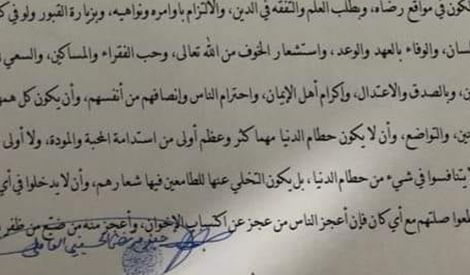 يكون في مواقع رضاه، وبطلب العلم والتفقه في الدين، والالتزام بأوامره ونواهيه، وبزيارة القبور ولو في ك
لسان، والوفاء بالعهد والوعد، واستشعار الخوف من الله تعالى، وحب الفقراء والمساكين، والسعي ا
ن، وبالصدق والاعتدال، وإكرام أهل الإيمان، واحترام الناس وإنصافهم من أنفسهم، وأن يكون كل همه
عين، والتواضع، وأن لا يكون حطام الدنيا مهما كثر وعظم أولى من استدامة المحبة والمودة، ولا أولى
لا يتنافسوا في شيء من حطام الدنيا، بل يكون التخلي عنها للطامعين فيها شعارهم، وأن لا يدخلوا في أي
طعوا صلتهم مع أي كان فإن أعجز الناس من عجز عن اكتساب الإخوان، وأعجز منه من ضيّع من ظفر
جعفر مرتضى الحسيني العاملي